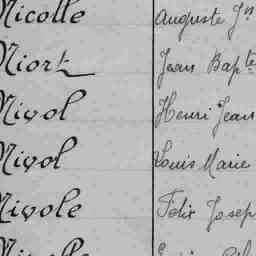 Nicolle Auguste Jn
Niort Jean Bapte
Nivol Henri Jean
Nivol Louis Marie
Nivole Felix Josep